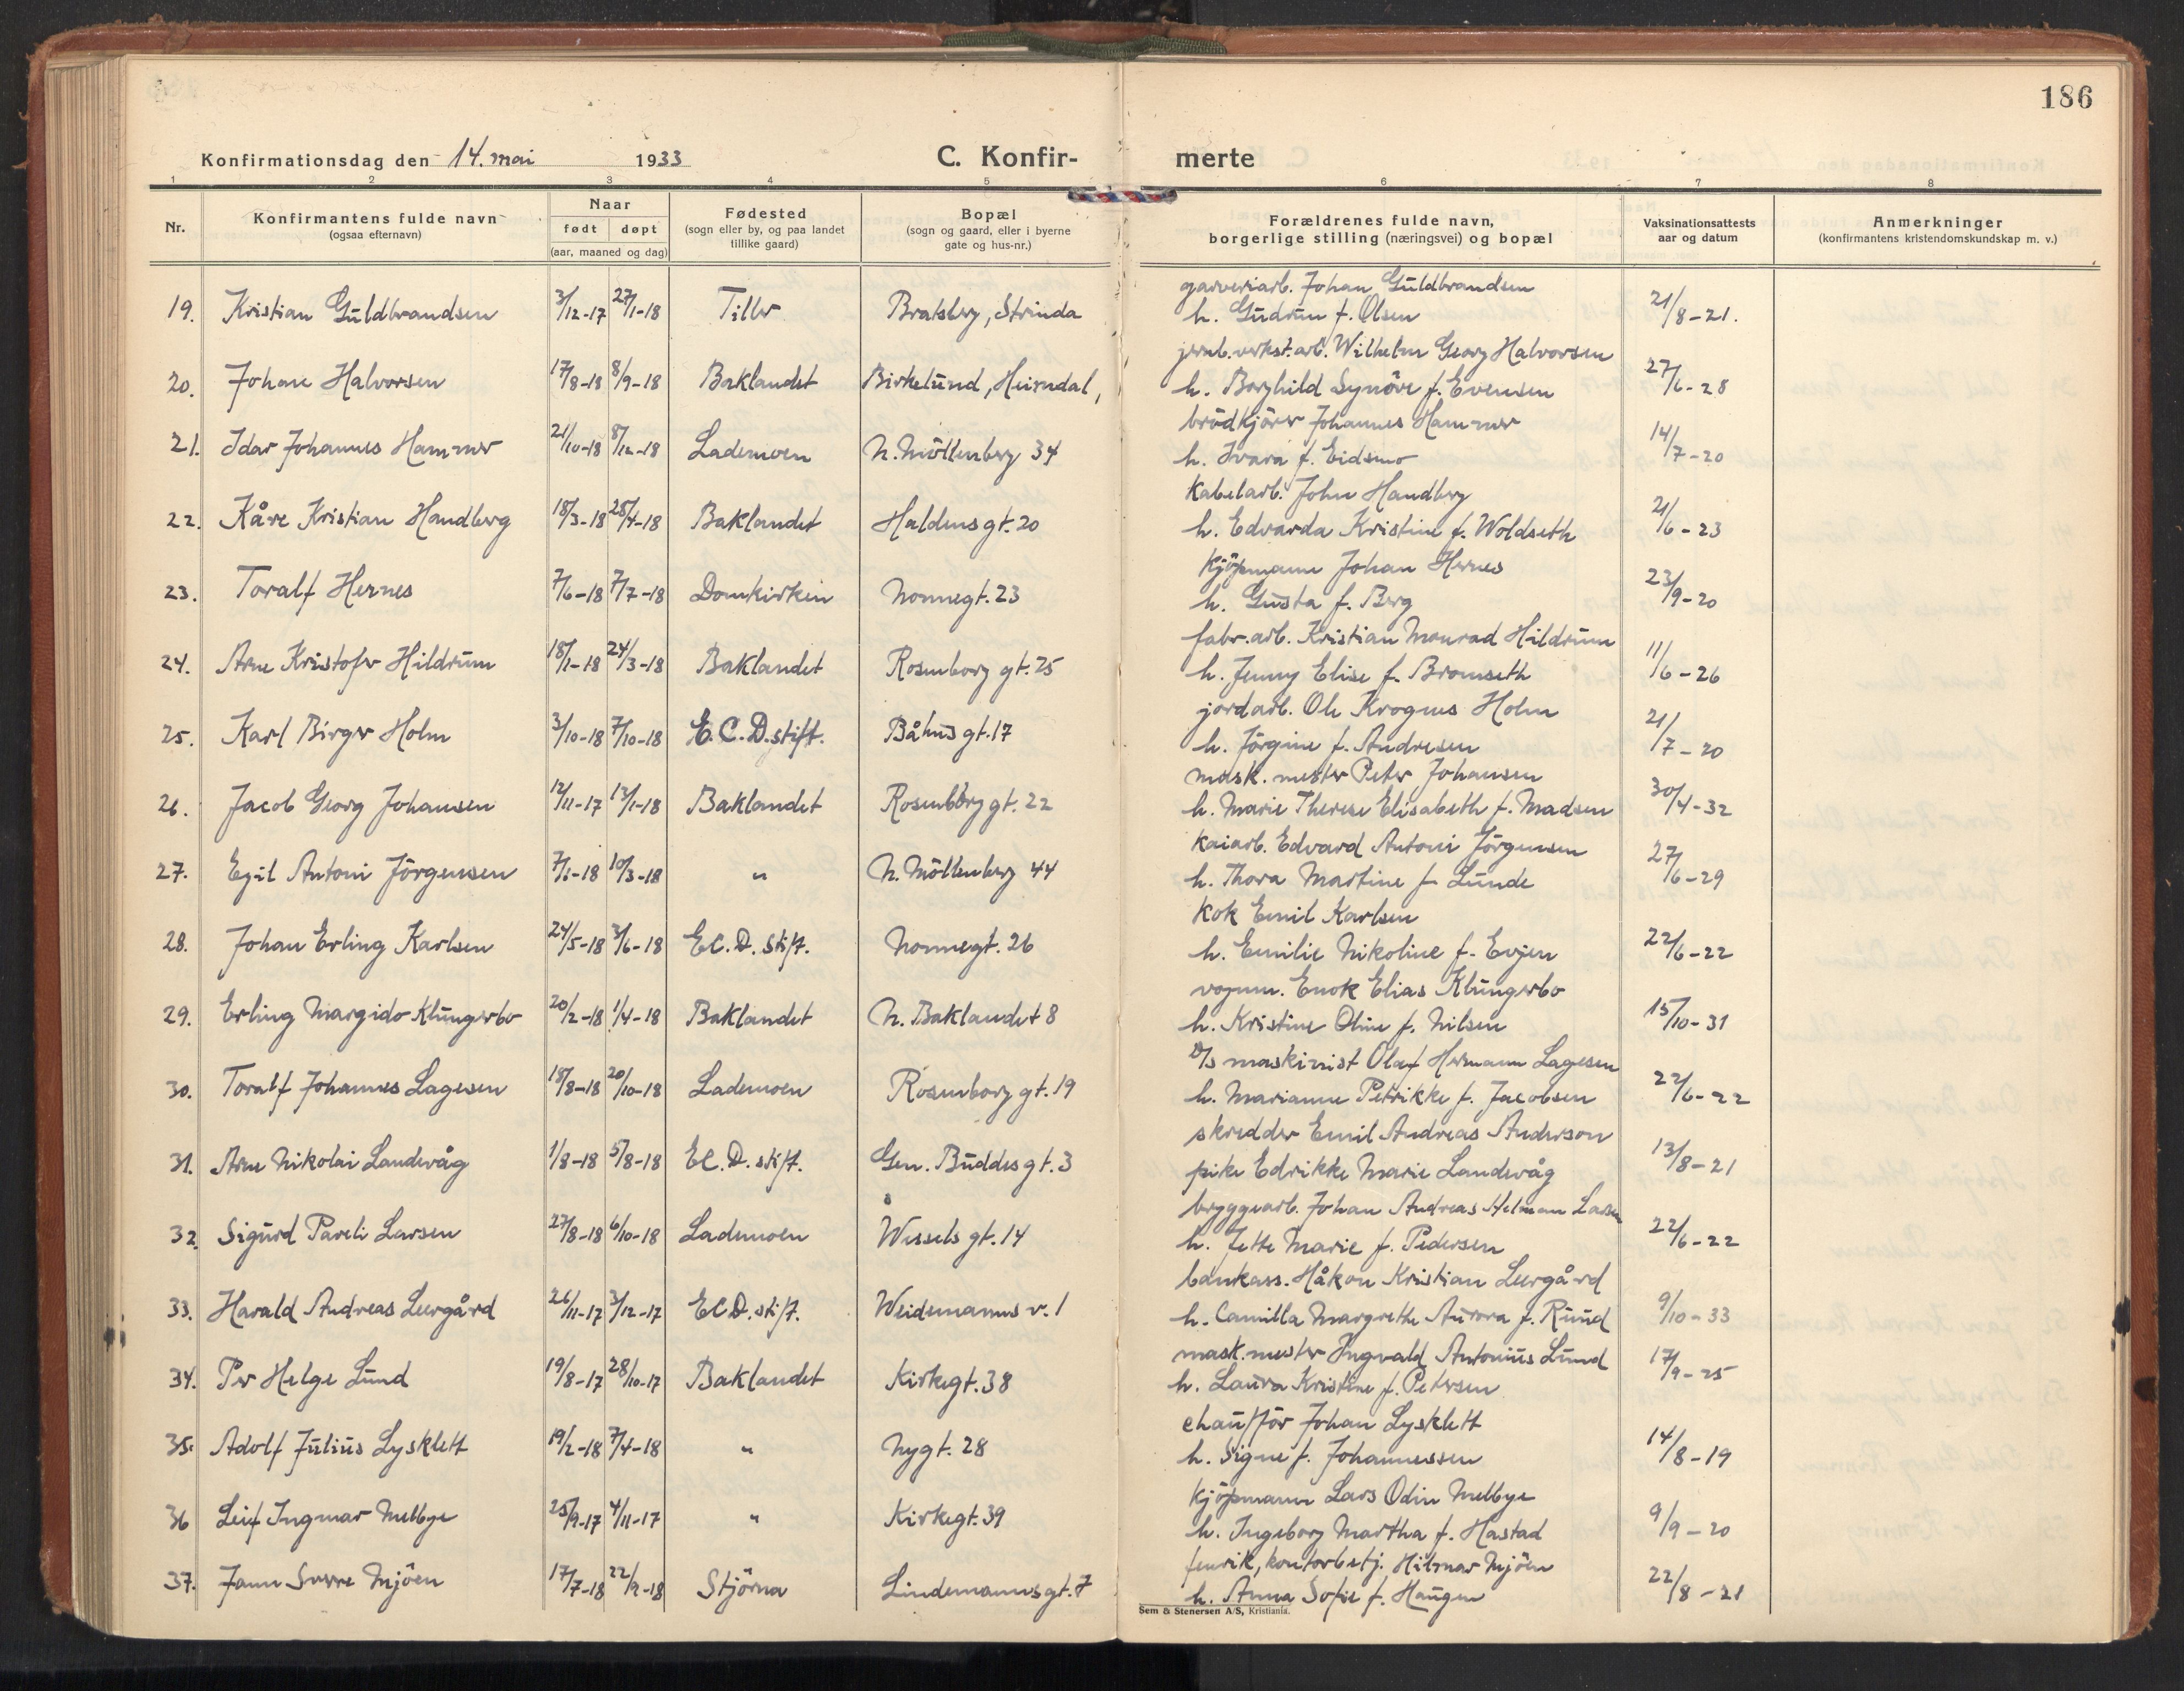 186
Konfirmationsdag den 14. mai 1933 C. Konfir- merte
1 2 3 4 5 6 7 8
Nr.
Konfirmantens fulde navn
(ogsaa efternavn)
Naar
født døpt
(aar, maaned og dag)
Fødested
(sogn eller by, og paa landet
tillike gaard)
Bopæl
(sogn og gaard, eller i byerne
gate og hus-nr.)
Forældrenes fulde navn,
borgerlige stilling (næringsvei) og bopæl
Vaksinationsattests
aar og datum
Anmerkninger
(konfirmantens kristendomskundskap m. v.)
garveriarb. Johan Guldbrandsen
19. Kristian Guldbrandsen 3/12-17 27/1-18 Tiller Bratsberg, Strinda h. Gudrun f. Olsen 21/8-21.
jernb.verkst.arb. Wilhelm Georg Halvorsen
20. Johan Halvorsen 17/8-18 8/9-18 Baklandet Birkelund, Heimdal, h. Borghild Synöve f. Evensen 27/6-28
brödkjörer Johannes Hammer
21. Idar Johannes Hammer 21/10-18 8/12-18 Lademoen N. Möllenberg 34 h. Ivara f. Eidsmo 14/7-20
Kabelarb. John Handberg
22. Kåre Kristian Handberg 18/3-18 28/4-18 Baklandet Haldens gt. 20 h. Edvarda Kristine f. Woldseth 21/6-23
Kjöpmann Johan Hernes
23. Toralf Hernes 7/6-18 7/7-18 Domkirken Nonnegt. 23 h. Gusta f. Berg 23/9-20
fabr.arb. Kristian Monrad Hildrum
24. Arne Kristofer Hildrum 18/1-18 24/3-18 Baklandet Rosenborg gt. 25 h. Jenny Elise f. Bromseth 11/6-26
jordarb. Ole Krognes Holm
25. Karl Birger Holm 3/10-18 7/10-18 E.C.D. stift. Båhus gt. 17 h. Jörgine f. Andresen 21/7-20
mask.mester Peter Johansen
26. Jacob Georg Johansen 12/11-17 13/1-18 Baklandet Rosenborg gt. 22 h. Marie Therese Elisabeth f. Madsen 30/4-32
Kaiarb. Edvard Antoni Jörgensen
27. Egil Antoni Jörgensen 7/1-18 10/3-18 " N. Möllenberg 44 h. Thora Martine f. Lunde 27/6-29
Kok Emil Karlsen
28. Johan Erling Karlsen 24/5-18 3/6-18 E.C.D. stift. Nonnegt. 26 h. Emilie Nikoline f. Evjen 22/6-22
vognm. Enok Elias Klungerbo
29. Erling Margido Klungerbo 20/2-18 1/4-18 Baklandet N. Baklandet 8 h. Kristine Oline f. Nilsen 15/10-31
D/s maskinist Olaf Hermann Lagesen
30. Toralf Johannes Lagesen 18/8-18 20/10-18 Lademoen Rosenborg gt. 19 h. Marianne Petrikke f. Jacobsen 22/6-22
skredder Emil Andreas Anderson
31. Arne Nikolai Landevåg 1/8-18 5/8-18 E.C.D. stift. Gen. Buddes gt. 3 pike Edrikke Marie Landevåg 13/8-21
bryggearb. Johan Andreas Helman Larsen
32. Sigurd Pareli Larsen 27/8-18 6/10-18 Lademoen Wessels gt. 14 h. Jette Marie f. Pedersen 22/6-22
bankass. Håkon Kristian Leergård
33. Harald Andreas Leergård 26/11-17 3/12-17 E.C.D. stift. Weidemanns v. 1 h. Camilla Margrethe Aurora f. Ruud 9/10-33
mask.mester Ingvald Antonius Lund
34. Per Helge Lund 19/8-17 28/10-17 Baklandet Kirkegt. 38 h. Laura Kristine f. Petersen 17/9-25
chauffør Johan Lysklett
35. Adolf Julius Lysklett 19/2-18 7/4-18 " Nygt. 28 h. Signe f. Johannessen 14/8-19
Kjöpmann Lars Odin Melbye
36 Leif Ingmar Melbye 25/9-17 4/11-17 " Kirkegt. 39 h. Ingeborg Martha f. Hastad 9/9-20
fenrik, kontorbetj. Hilmar Mjöen
37. Jann Sverre Mjöen 17/7-18 22/9-18 Stjörna Lindemanns gt. 7 h. Anna Sofie f. Haugen 22/8-21
Sem & Stenersen A/S, Kristiania.